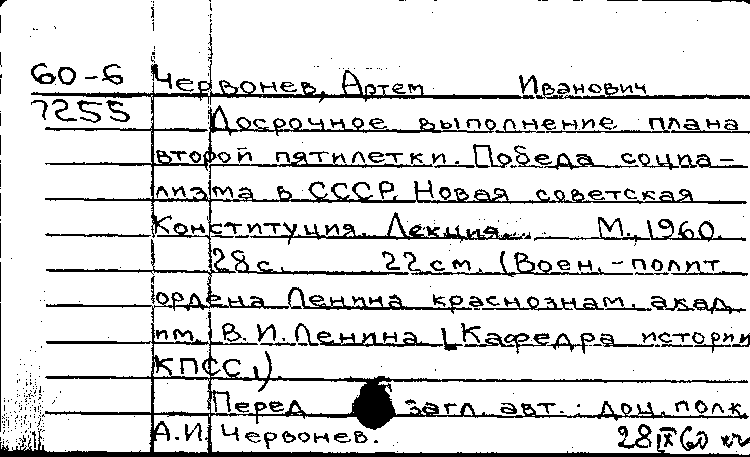 60-6 Червонев, Артем Иванович
7255 Досрочное выполнение плана
второй пятилетки. Победа социа-
лизма в СССР. Новая советская
Конституция. Лекция. М., 1960.
28 с. 22 см. (Воен.-полит
ордена Ленина краснознам. акад
им. В.И. Ленина [Кафедра истории
КПСС])
Перед загл. авт.: доц. полк.
А.И. Червонев. 28 IX 60